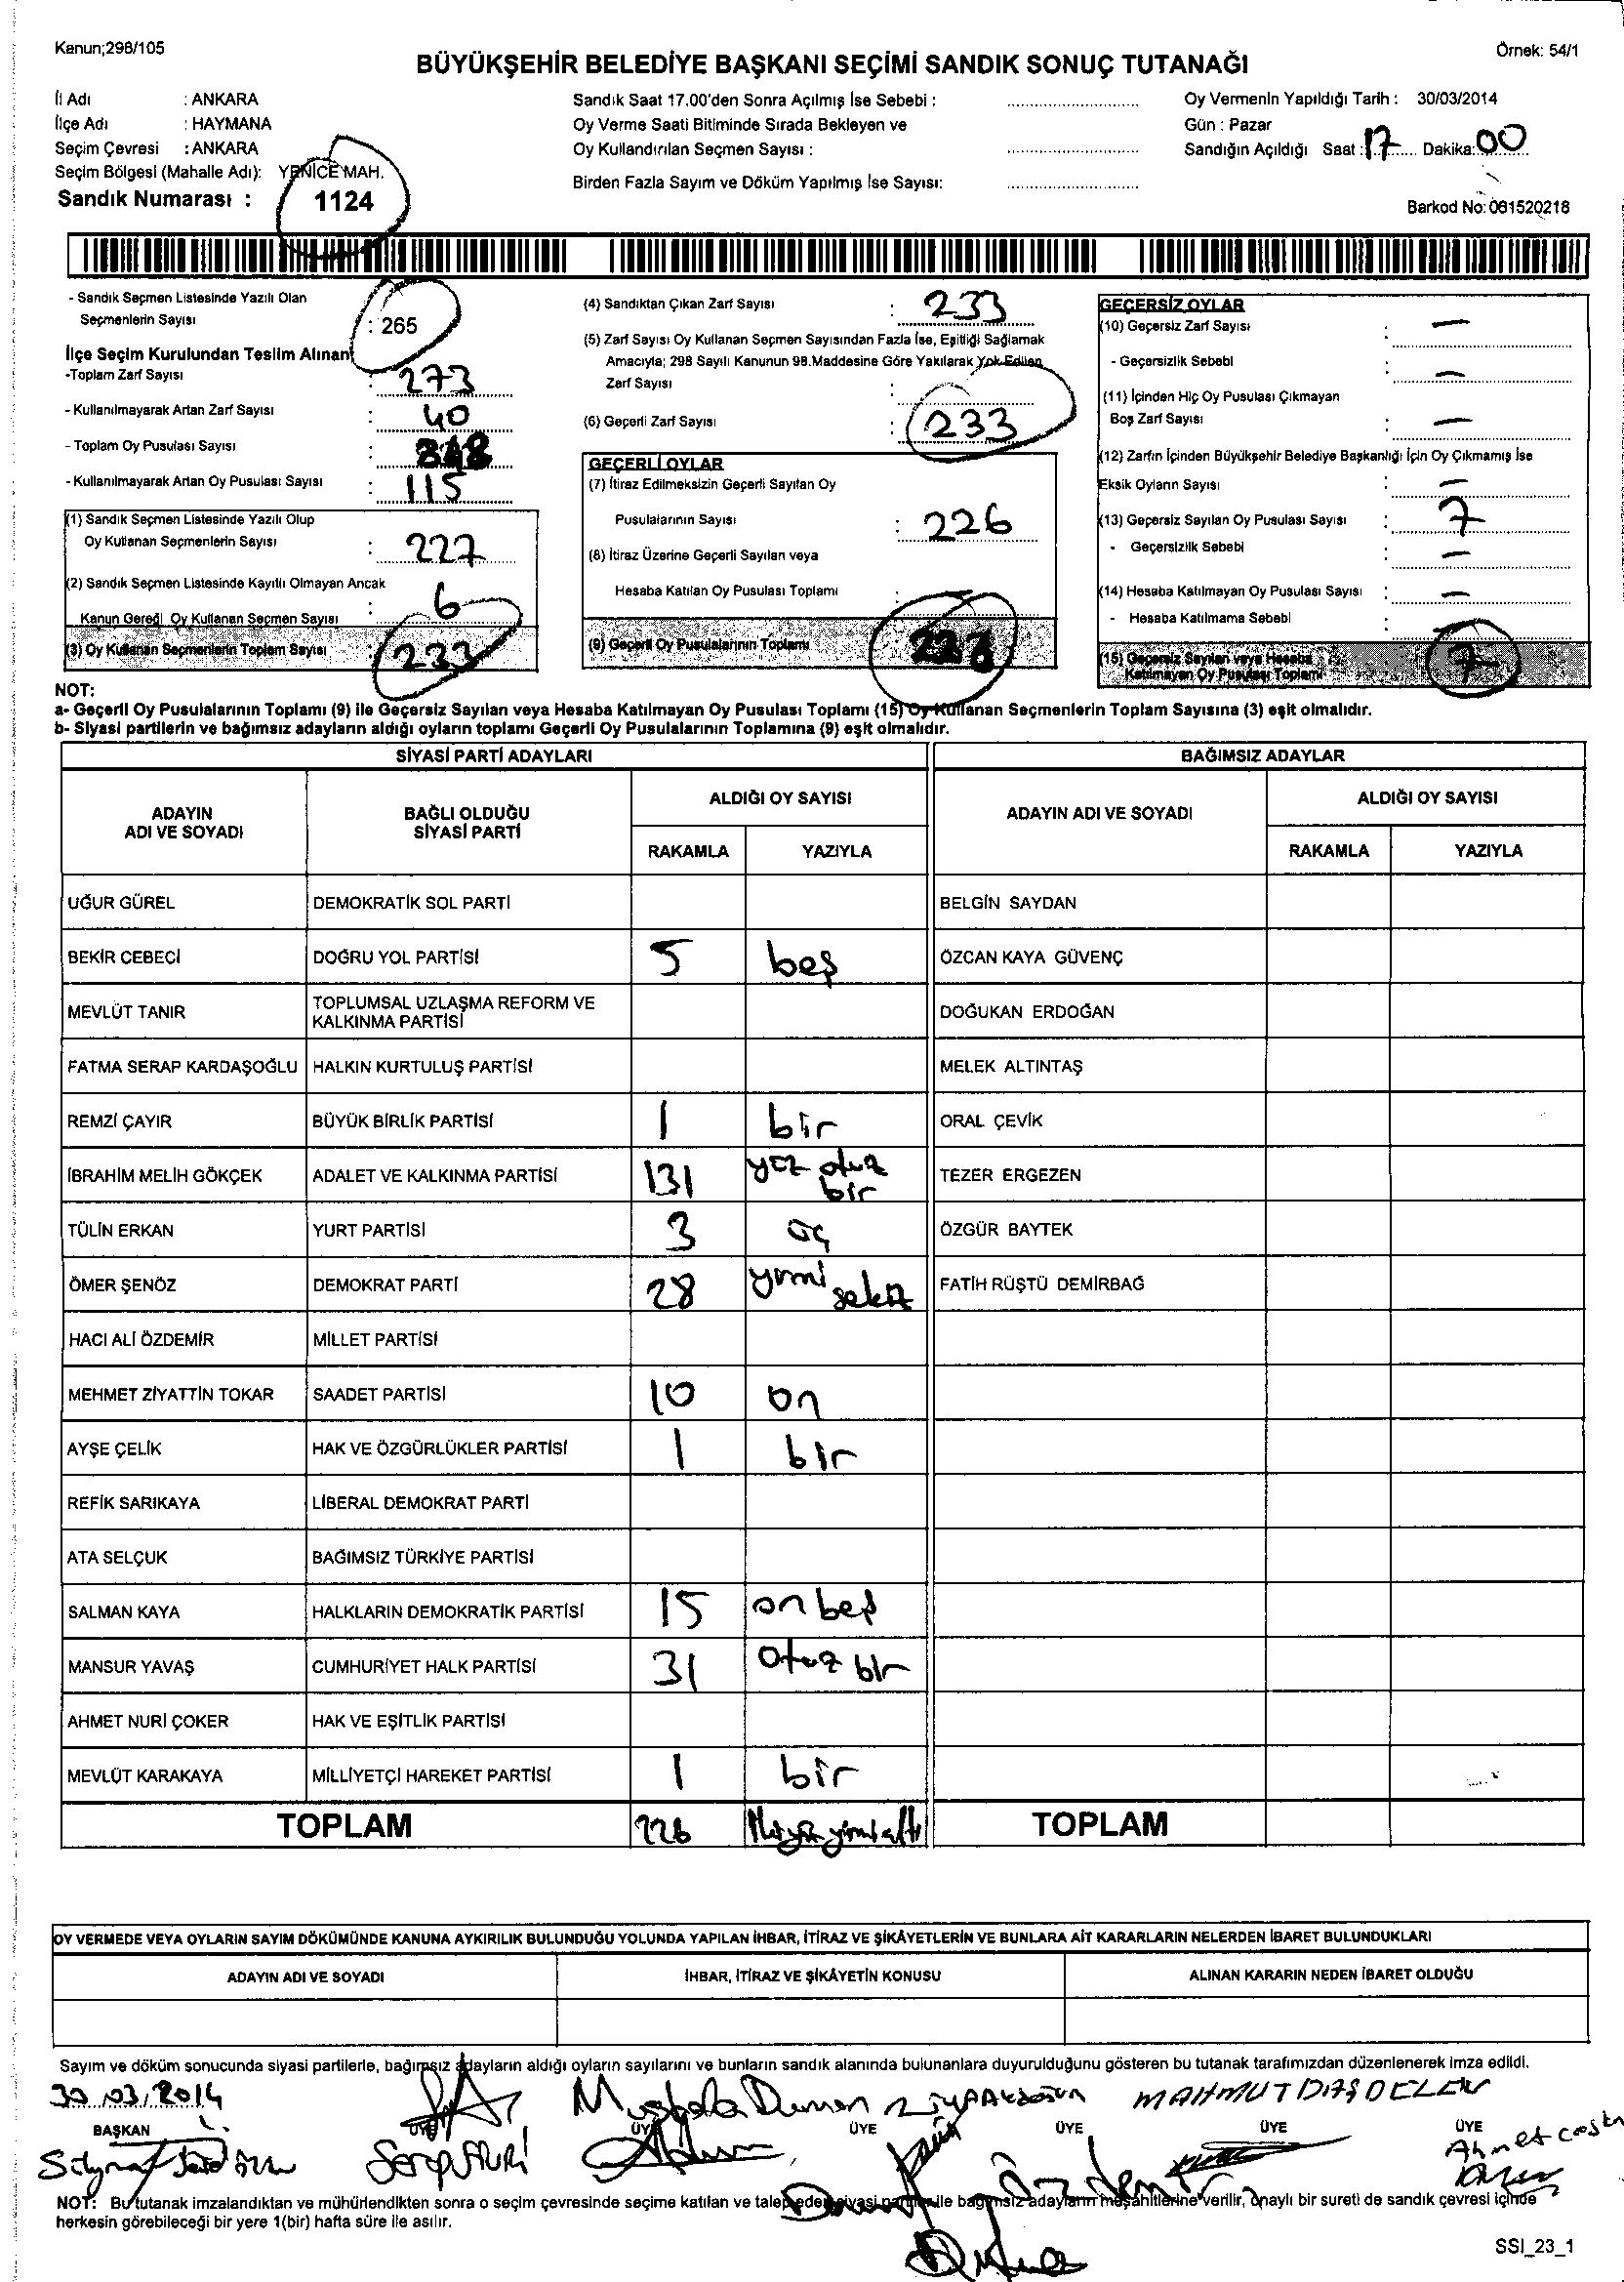 Kanun;298/105
Örnek: 54/1
BÜYÜKŞEHİR BELEDİYE BAŞKANI SEÇİMİ SANDIK SONUÇ TUTANAĞI
İl Adı : ANKARA
İlçe Adı : HAYMANA
Seçim Çevresi : ANKARA
Seçim Bölgesi (Mahalle Adı): YENİCE MAH.
Sandık Numarası : 1124
Sandık Saat 17.00'den Sonra Açılmış İse Sebebi :
Oy Verme Saati Bitiminde Sırada Bekleyen ve
Oy Kullandırılan Seçmen Sayısı :
Birden Fazla Sayım ve Döküm Yapılmış İse Sayısı:
Oy Vermenin Yapıldığı Tarih : 30/03/2014
Gün : Pazar
Sandığın Açıldığı Saat : 17 Dakika: 00
Barkod No: 061520218
- Sandık Seçmen Listesinde Yazılı Olan
Seçmenlerin Sayısı : 265
İlçe Seçim Kurulundan Teslim Alınan
-Toplam Zarf Sayısı : 273
- Kullanılmayarak Artan Zarf Sayısı : 40
- Toplam Oy Pusulası Sayısı :
- Kullanılmayarak Artan Oy Pusulası Sayısı : 115
(1) Sandık Seçmen Listesinde Yazılı Olup
Oy Kullanan Seçmenlerin Sayısı : 227
(2) Sandık Seçmen Listesinde Kayıtlı Olmayan Ancak
Kanun Gereği Oy Kullanan Seçmen Sayısı : 6
(3) Oy Kullanan Seçmenlerin Toplam Sayısı : 233
(4) Sandıktan Çıkan Zarf Sayısı : 233
(5) Zarf Sayısı Oy Kullanan Seçmen Sayısından Fazla İse, Eşitliği Sağlamak
Amacıyla; 298 Sayılı Kanunun 98.Maddesine Göre Yakılarak Yok Edilen
Zarf Sayısı :
(6) Geçerli Zarf Sayısı : 233
GEÇERLİ OYLAR
(7) İtiraz Edilmeksizin Geçerli Sayılan Oy
Pusulalarının Sayısı : 226
(8) İtiraz Üzerine Geçerli Sayılan veya
Hesaba Katılan Oy Pusulası Toplamı : —
(9) Geçerli Oy Pusulalarının Toplamı 226
GEÇERSİZ OYLAR
(10) Geçersiz Zarf Sayısı : —
- Geçersizlik Sebebi : —
(11) İçinden Hiç Oy Pusulası Çıkmayan
Boş Zarf Sayısı : —
(12) Zarfın İçinden Büyükşehir Belediye Başkanlığı İçin Oy Çıkmamış İse
Eksik Oyların Sayısı : —
(13) Geçersiz Sayılan Oy Pusulası Sayısı : 7
- Geçersizlik Sebebi : —
(14) Hesaba Katılmayan Oy Pusulası Sayısı : —
- Hesaba Katılmama Sebebi : —
(15) Geçersiz Sayılan veya Hesaba
Katılmayan Oy Pusulası Toplamı 7
NOT:
a- Geçerli Oy Pusulalarının Toplamı (9) ile Geçersiz Sayılan veya Hesaba Katılmayan Oy Pusulası Toplamı (15) Oy Kullanan Seçmenlerin Toplam Sayısına (3) eşit olmalıdır.
b- Siyasi partilerin ve bağımsız adayların aldığı oyların toplamı Geçerli Oy Pusulalarının Toplamına (9) eşit olmalıdır.
SİYASİ PARTİ ADAYLARI BAĞIMSIZ ADAYLAR
ADAYIN
ADI VE SOYADI
BAĞLI OLDUĞU
SİYASİ PARTİ
ALDIĞI OY SAYISI
RAKAMLA YAZIYLA
ADAYIN ADI VE SOYADI
ALDIĞI OY SAYISI
RAKAMLA YAZIYLA
UĞUR GÜREL DEMOKRATİK SOL PARTİ BELGİN SAYDAN
BEKİR CEBECİ DOĞRU YOL PARTİSİ 5 beş ÖZCAN KAYA GÜVENÇ
MEVLÜT TANIR TOPLUMSAL UZLAŞMA REFORM VE
KALKINMA PARTİSİ DOĞUKAN ERDOĞAN
FATMA SERAP KARDAŞOĞLU HALKIN KURTULUŞ PARTİSİ MELEK ALTINTAŞ
REMZİ ÇAYIR BÜYÜK BİRLİK PARTİSİ 1 bir ORAL ÇEVİK
İBRAHİM MELİH GÖKÇEK ADALET VE KALKINMA PARTİSİ 131 yüz otuz bir TEZER ERGEZEN
TÜLİN ERKAN YURT PARTİSİ 3 üç ÖZGÜR BAYTEK
ÖMER ŞENÖZ DEMOKRAT PARTİ 28 yirmi sekiz FATİH RÜŞTÜ DEMİRBAĞ
HACI ALİ ÖZDEMİR MİLLET PARTİSİ
MEHMET ZİYATTİN TOKAR SAADET PARTİSİ 10 on
AYŞE ÇELİK HAK VE ÖZGÜRLÜKLER PARTİSİ 1 bir
REFİK SARIKAYA LİBERAL DEMOKRAT PARTİ
ATA SELÇUK BAĞIMSIZ TÜRKİYE PARTİSİ
SALMAN KAYA HALKLARIN DEMOKRATİK PARTİSİ 15 on beş
MANSUR YAVAŞ CUMHURİYET HALK PARTİSİ 31 otuz bir
AHMET NURİ ÇOKER HAK VE EŞİTLİK PARTİSİ
MEVLÜT KARAKAYA MİLLİYETÇİ HAREKET PARTİSİ 1 bir
TOPLAM 226 ikiyüz yirmi altı TOPLAM
OY VERMEDE VEYA OYLARIN SAYIM DÖKÜMÜNDE KANUNA AYKIRILIK BULUNDUĞU YOLUNDA YAPILAN İHBAR, İTİRAZ VE ŞİKÂYETLERİN VE BUNLARA AİT KARARLARIN NELERDEN İBARET BULUNDUKLARI
ADAYIN ADI VE SOYADI İHBAR, İTİRAZ VE ŞİKÂYETİN KONUSU ALINAN KARARIN NEDEN İBARET OLDUĞU
Sayım ve döküm sonucunda siyasi partilerle, bağımsız adayların aldığı oyların sayılarını ve bunların sandık alanında bulunanlara duyurulduğunu gösteren bu tutanak tarafımızdan düzenlenerek imza edildi.
30/03/2014 Mustafa Duman MAHMUT
BAŞKAN ÜYE ÜYE ÜYE ÜYE ÜYE ÜYE
Özdemir Ahmet
NOT: Bu tutanak imzalandıktan ve mühürlendikten sonra o seçim çevresinde seçime katılan ve talep eden siyasi partiler ile bağımsız adayların müşahitlerine verilir, onaylı bir sureti de sandık çevresi içinde
herkesin görebileceği bir yere 1(bir) hafta süre ile asılır.
SSI_23_1